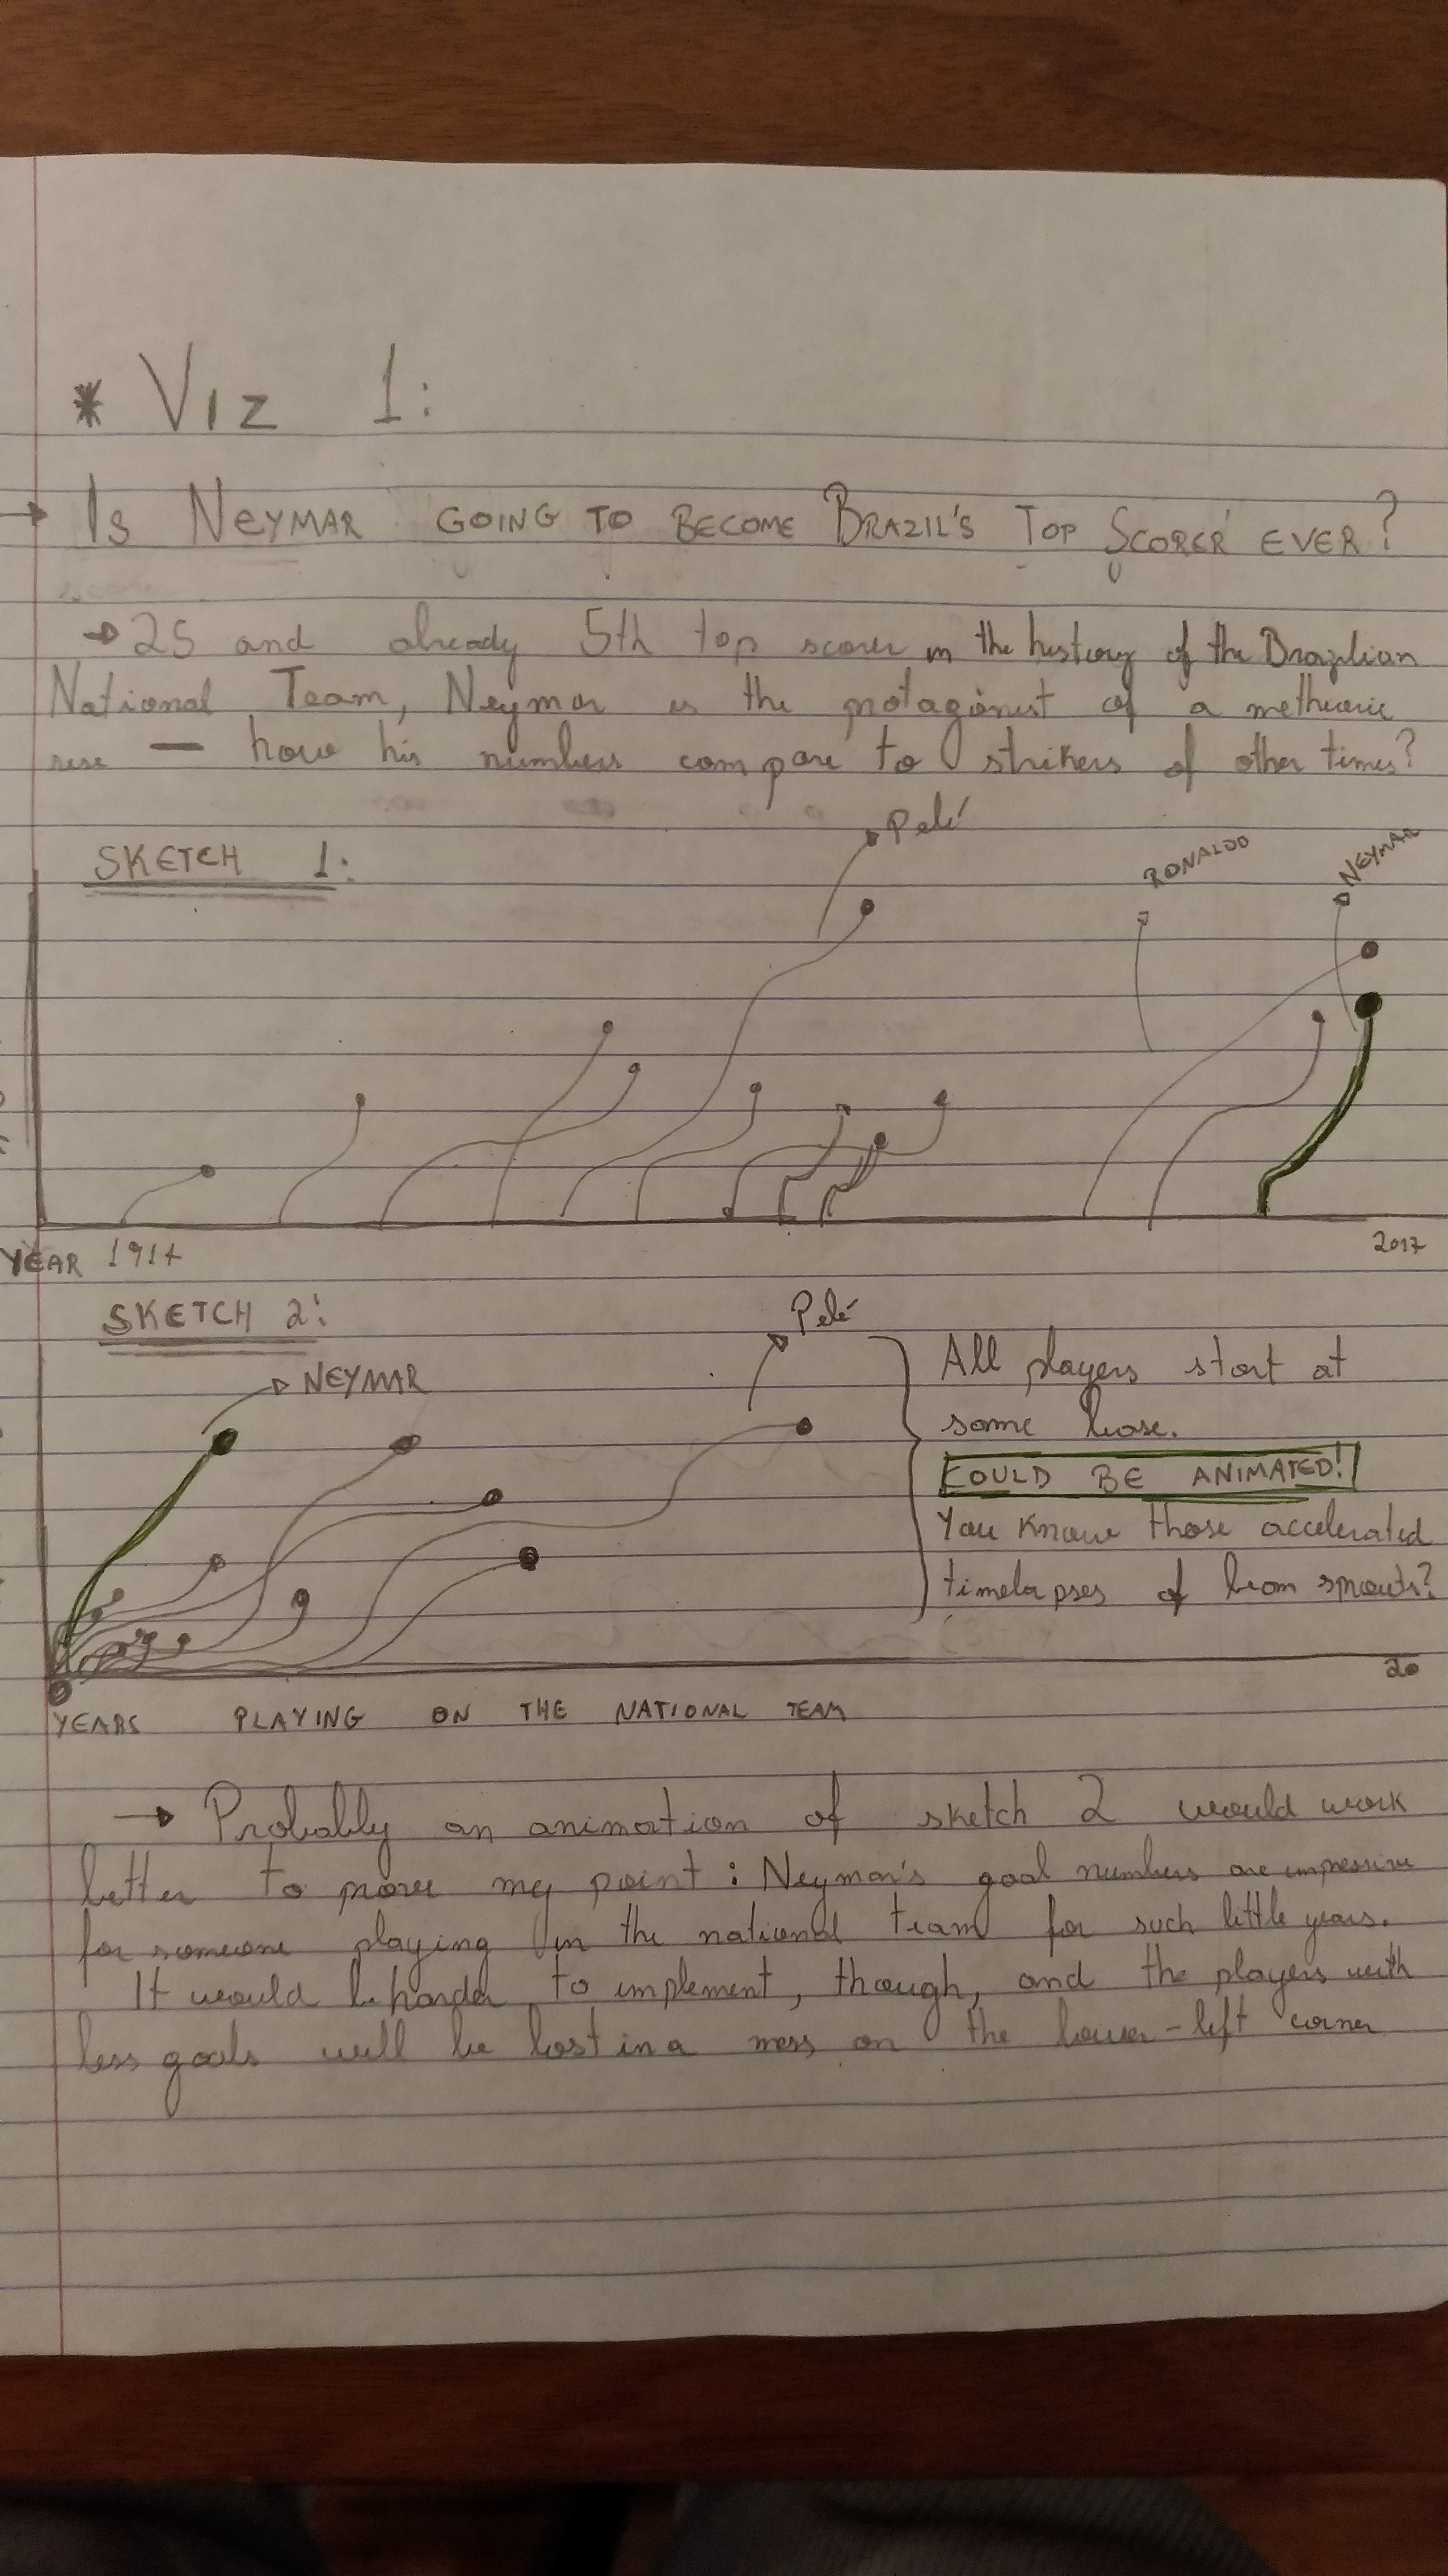 * VIZ 1:
→ IS NEYMAR GOING TO BECOME BRAZIL'S TOP SCORER EVER?
→ 25 and already 5th top scorer in the history of the Brazilian
National Team, Neymar is the protagonist of a metheoric
rise — how his numbers compare to strikers of other times?
Pelé
RONALDO
NEYMAR
SKETCH 1:
YEAR 1914
2017
SKETCH 2:
Pelé
NEYMAR
All players start at
same base.
COULD BE ANIMATED!
You know those accelerated
timelapses of bean sprouts?
20
YEARS PLAYING ON THE NATIONAL TEAM
→ Probably an animation of sketch 2 would work
better to prove my point: Neymar's goal numbers are impressive
for someone playing in the national team for such little years.
It would be harder to implement, though, and the players with
less goals will be lost in a mess on the lower-left corner